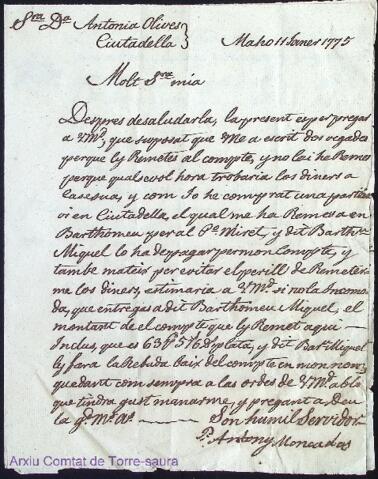 Sra Da Antonia Olives
Ciutadella
Maho 11 Janer 1775
Molt Sra mia
Despres desaludarla, la present es per pregar
a VMd, que suposat que Me a escrit dos vegades
perque ly Remetes al compte, y no lai he Remes
perque qualsevol hora trobaria los diners a
casesua, y com Jo he comprat una partida
vi en Ciutadella, el qual me ha Remes en
Barthomeu per al Pe Miret, y dit Barthu
Miquel lo ha de pagar per mon Compte, y
tambe mateix per evitar el perill de Remeter
me los diners, estimaria a VMd si no la Incomo
da, que entregas a dit Barthomeu Miquel, el
montant de el compte que ly Remet aqui
Inclus, que es 65 5 6 d plata, y dit Bar Miquel
ly fara la Rebuda baix del compte en mon nom;
quedant com sempra a les ordes de VMd ab lo
que tindra gust manarme, y pregant a Deu
la gde Ms As
Son humil Servidor
Pr Antony Moncadas
Arxiu Comtat de Torre-saura